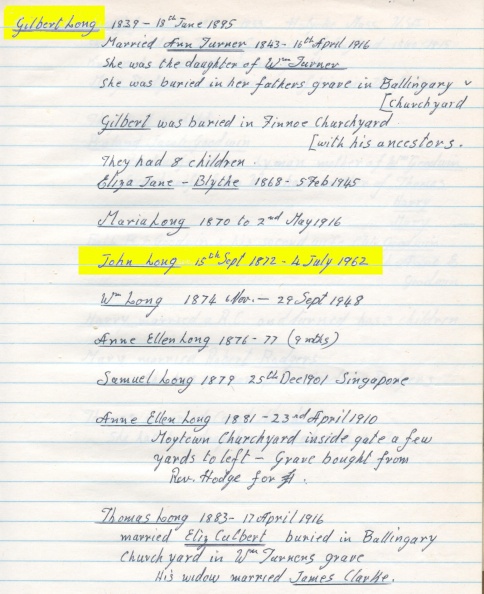 Gilbert Long 1839 - 18th June 1895
Married Ann Turner 1843 - 16th April 1916
She was the daughter of Wm Turner
She was buried in her fathers grave in Ballingary
[Churchyard
Gilbert was buried in Finnoe Churchyard
[with his ancestors.
They had 8 children
Eliza Jane - Blythe 1868 - 5 Feb 1945
Maria Long 1870 to 2nd May 1916
John Long 15th Sept 1872 - 4 July 1962
Wm Long 1874 Nov. - 29 Sept 1948
Anne Ellen Long 1876-77 (9 mths)
Samuel Long 1879 25th Dec 1901 Singapore
Anne Ellen Long 1881 - 23rd April 1910
Moytown Churchyard inside gate a few
yards to left - Grave bought from
Rev. Hodge for
Thomas Long 1883 - 17 April 1916
married Eliz Culbert buried in Ballingary
Church yard in Wm Turners grave
His widow married James Clarke.